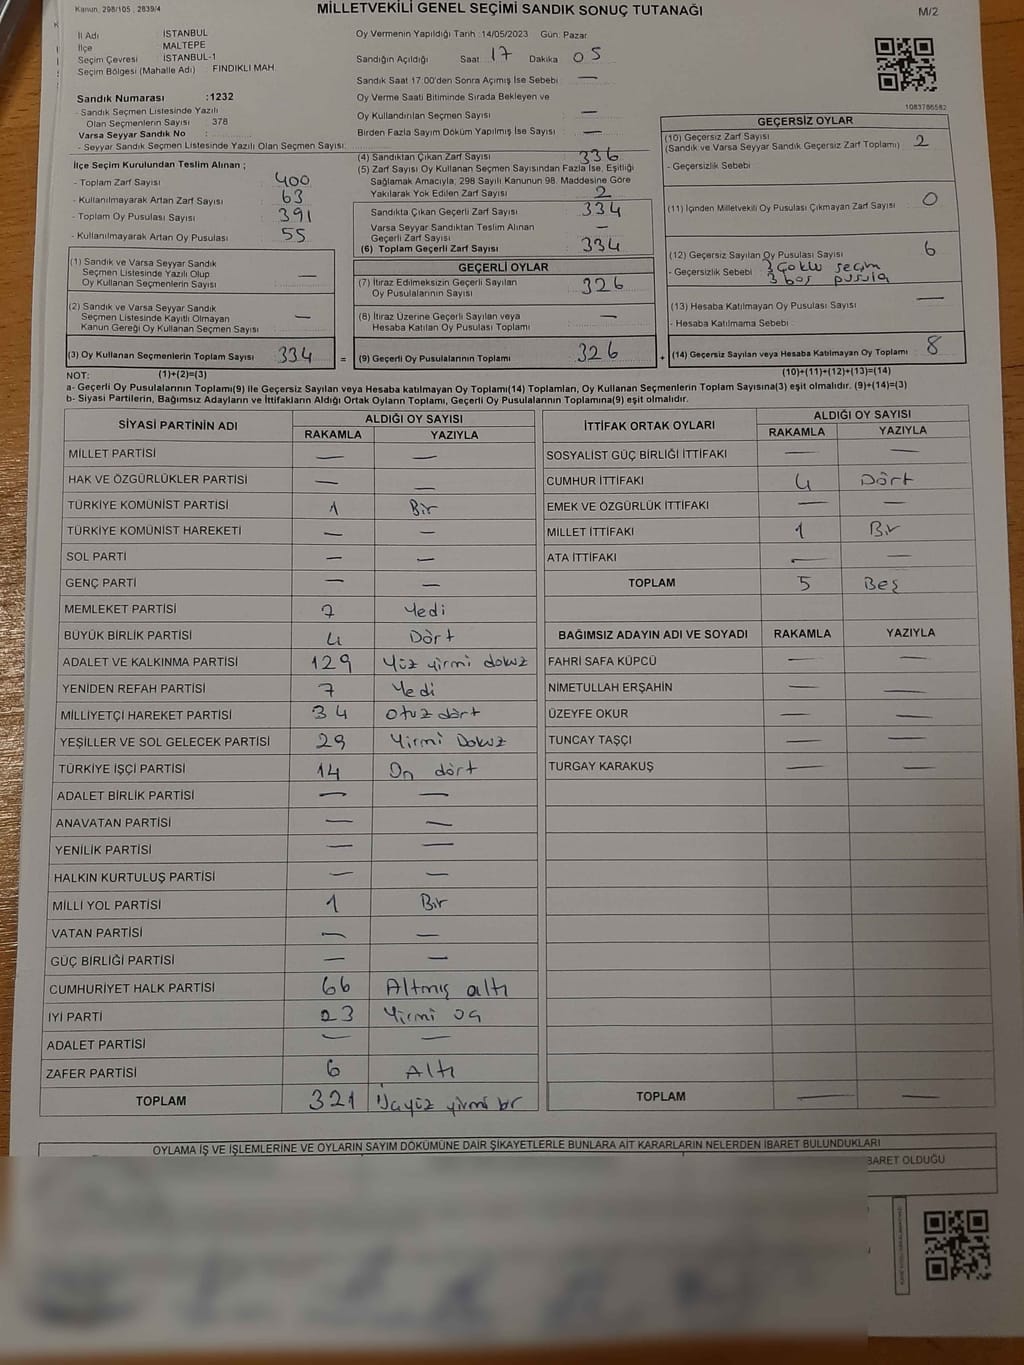 Kanun. 298/105 , 2839/4
MİLLETVEKİLİ GENEL SEÇİMİ SANDIK SONUÇ TUTANAĞI
M/2
İl Adı : İSTANBUL
İlçe : MALTEPE
Seçim Çevresi : İSTANBUL-1
Seçim Bölgesi (Mahalle Adı) : FINDIKLI MAH.
Sandık Numarası :1232
- Sandık Seçmen Listesinde Yazılı
Olan Seçmenlerin Sayısı : 378
Varsa Seyyar Sandık No :
- Seyyar Sandık Seçmen Listesinde Yazılı Olan Seçmen Sayısı:
Oy Vermenin Yapıldığı Tarih :14/05/2023 Gün: Pazar
Sandığın Açıldığı Saat 17 Dakika 05
Sandık Saat 17.00'den Sonra Açımış İse Sebebi : —
Oy Verme Saati Bitiminde Sırada Bekleyen ve
Oy Kullandırılan Seçmen Sayısı : —
Birden Fazla Sayım Döküm Yapılmış İse Sayısı : —
1083786582
İlçe Seçim Kurulundan Teslim Alınan ;
- Toplam Zarf Sayısı : 400
- Kullanılmayarak Artan Zarf Sayısı : 63
- Toplam Oy Pusulası Sayısı : 391
- Kullanılmayarak Artan Oy Pusulası : 55
(1) Sandık ve Varsa Seyyar Sandık
Seçmen Listesinde Yazılı Olup
Oy Kullanan Seçmenlerin Sayısı : —
(2) Sandık ve Varsa Seyyar Sandık
Seçmen Listesinde Kayıtlı Olmayan
Kanun Gereği Oy Kullanan Seçmen Sayısı : —
(3) Oy Kullanan Seçmenlerin Toplam Sayısı : 334
(4) Sandıktan Çıkan Zarf Sayısı : 336
(5) Zarf Sayısı Oy Kullanan Seçmen Sayısından Fazla İse, Eşitliği
Sağlamak Amacıyla, 298 Sayılı Kanunun 98. Maddesine Göre
Yakılarak Yok Edilen Zarf Sayısı : 2
Sandıkta Çıkan Geçerli Zarf Sayısı : 334
Varsa Seyyar Sandıktan Teslim Alınan
Geçerli Zarf Sayısı : —
(6) Toplam Geçerli Zarf Sayısı : 334
GEÇERLİ OYLAR
(7) İtiraz Edilmeksizin Geçerli Sayılan
Oy Pusulalarının Sayısı : 326
(8) İtiraz Üzerine Geçerli Sayılan veya
Hesaba Katılan Oy Pusulası Toplamı : —
= (9) Geçerli Oy Pusulalarının Toplamı : 326
GEÇERSİZ OYLAR
(10) Geçersiz Zarf Sayısı
(Sandık ve Varsa Seyyar Sandık Geçersiz Zarf Toplamı) : 2
- Geçersizlik Sebebi :
(11) İçinden Milletvekili Oy Pusulası Çıkmayan Zarf Sayısı : 0
(12) Geçersiz Sayılan Oy Pusulası Sayısı : 6
- Geçersizlik Sebebi : 3 çoklu seçim
3 boş pusula
(13) Hesaba Katılmayan Oy Pusulası Sayısı : —
- Hesaba Katılmama Sebebi :
+ (14) Geçersiz Sayılan veya Hesaba Katılmayan Oy Toplamı : 8
NOT: (1)+(2)=(3) (10)+(11)+(12)+(13)=(14)
a- Geçerli Oy Pusulalarının Toplamı(9) ile Geçersiz Sayılan veya Hesaba katılmayan Oy Toplamı(14) Toplamları, Oy Kullanan Seçmenlerin Toplam Sayısına(3) eşit olmalıdır. (9)+(14)=(3)
b- Siyasi Partilerin, Bağımsız Adayların ve İttifakların Aldığı Ortak Oyların Toplamı, Geçerli Oy Pusulalarının Toplamına(9) eşit olmalıdır.
SİYASİ PARTİNİN ADI ALDIĞI OY SAYISI
RAKAMLA YAZIYLA
MİLLET PARTİSİ — —
HAK VE ÖZGÜRLÜKLER PARTİSİ — —
TÜRKİYE KOMÜNİST PARTİSİ 1 Bir
TÜRKİYE KOMÜNİST HAREKETİ — —
SOL PARTİ — —
GENÇ PARTİ — —
MEMLEKET PARTİSİ 7 Yedi
BÜYÜK BİRLİK PARTİSİ 4 Dört
ADALET VE KALKINMA PARTİSİ 129 Yüz yirmi dokuz
YENİDEN REFAH PARTİSİ 7 Yedi
MİLLİYETÇİ HAREKET PARTİSİ 34 Otuz dört
YEŞİLLER VE SOL GELECEK PARTİSİ 29 Yirmi Dokuz
TÜRKİYE İŞÇİ PARTİSİ 14 On dört
ADALET BİRLİK PARTİSİ — —
ANAVATAN PARTİSİ — —
YENİLİK PARTİSİ — —
HALKIN KURTULUŞ PARTİSİ — —
MİLLİ YOL PARTİSİ 1 Bir
VATAN PARTİSİ — —
GÜÇ BİRLİĞİ PARTİSİ — —
CUMHURİYET HALK PARTİSİ 66 Altmış altı
İYİ PARTİ 23 Yirmi üç
ADALET PARTİSİ — —
ZAFER PARTİSİ 6 Altı
TOPLAM 321 Üçyüz yirmi bir
İTTİFAK ORTAK OYLARI ALDIĞI OY SAYISI
RAKAMLA YAZIYLA
SOSYALİST GÜÇ BİRLİĞİ İTTİFAKI — —
CUMHUR İTTİFAKI 4 Dört
EMEK VE ÖZGÜRLÜK İTTİFAKI — —
MİLLET İTTİFAKI 1 Bir
ATA İTTİFAKI — —
TOPLAM 5 Beş
BAĞIMSIZ ADAYIN ADI VE SOYADI RAKAMLA YAZIYLA
FAHRİ SAFA KÜPCÜ — —
NİMETULLAH ERŞAHİN — —
ÜZEYFE OKUR — —
TUNCAY TAŞÇI — —
TURGAY KARAKUŞ — —
TOPLAM — —
OYLAMA İŞ VE İŞLEMLERİNE VE OYLARIN SAYIM DÖKÜMÜNE DAİR ŞİKAYETLERLE BUNLARA AİT KARARLARIN NELERDEN İBARET BULUNDUKLARI
BARET OLDUĞU